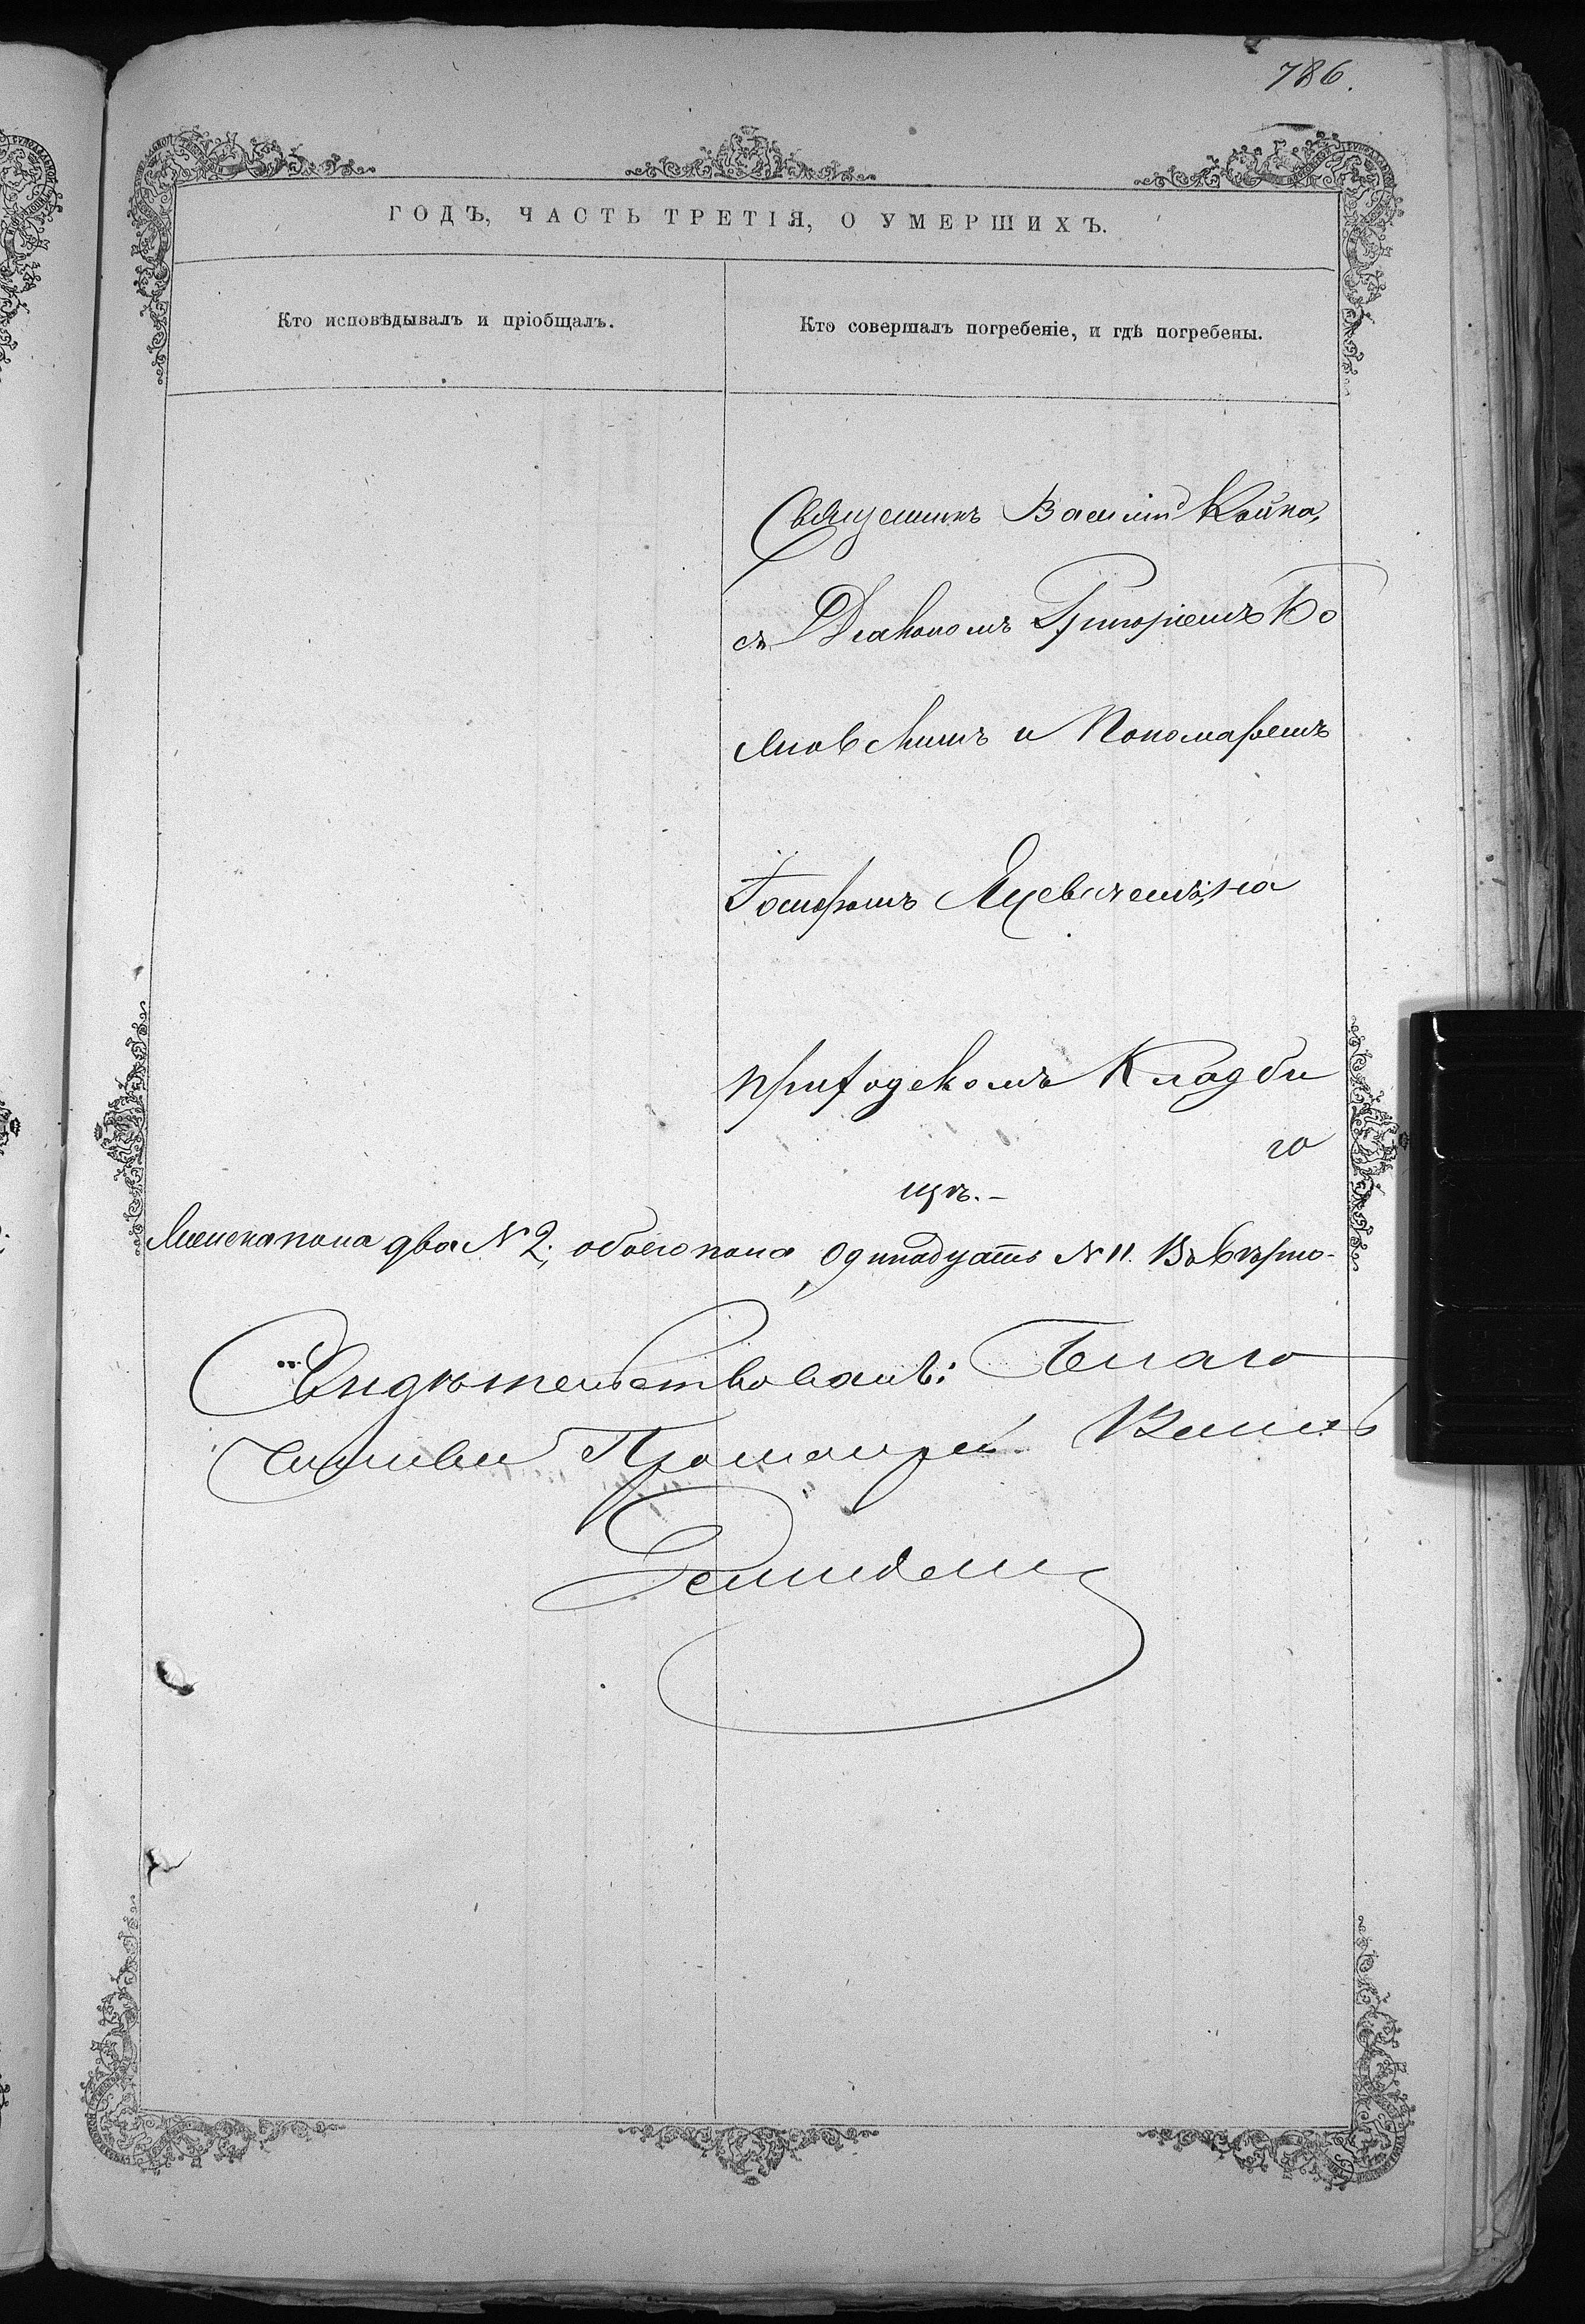 786.
ГОДЪ, ЧАСТЬ ТРЕТІЯ, О УМЕРШИХЪ.
Кто исповѣдывалъ и пріобщалъ.
Кто совершалъ погребеніе, и гдѣ погребены.
Священникъ Василій Койко,
съ Діакономъ Григоріемъ Бо
яновскимъ и Пономаремъ
Госифомъ Яцевичемъ, на
приходскомъ Кладби
го
щѣ.-
Женска пола два № 2; обоего пола Одинадцать № 11. Въ вѣрно-
Свидѣтельствовалъ: Благо
чинный Протоіерей